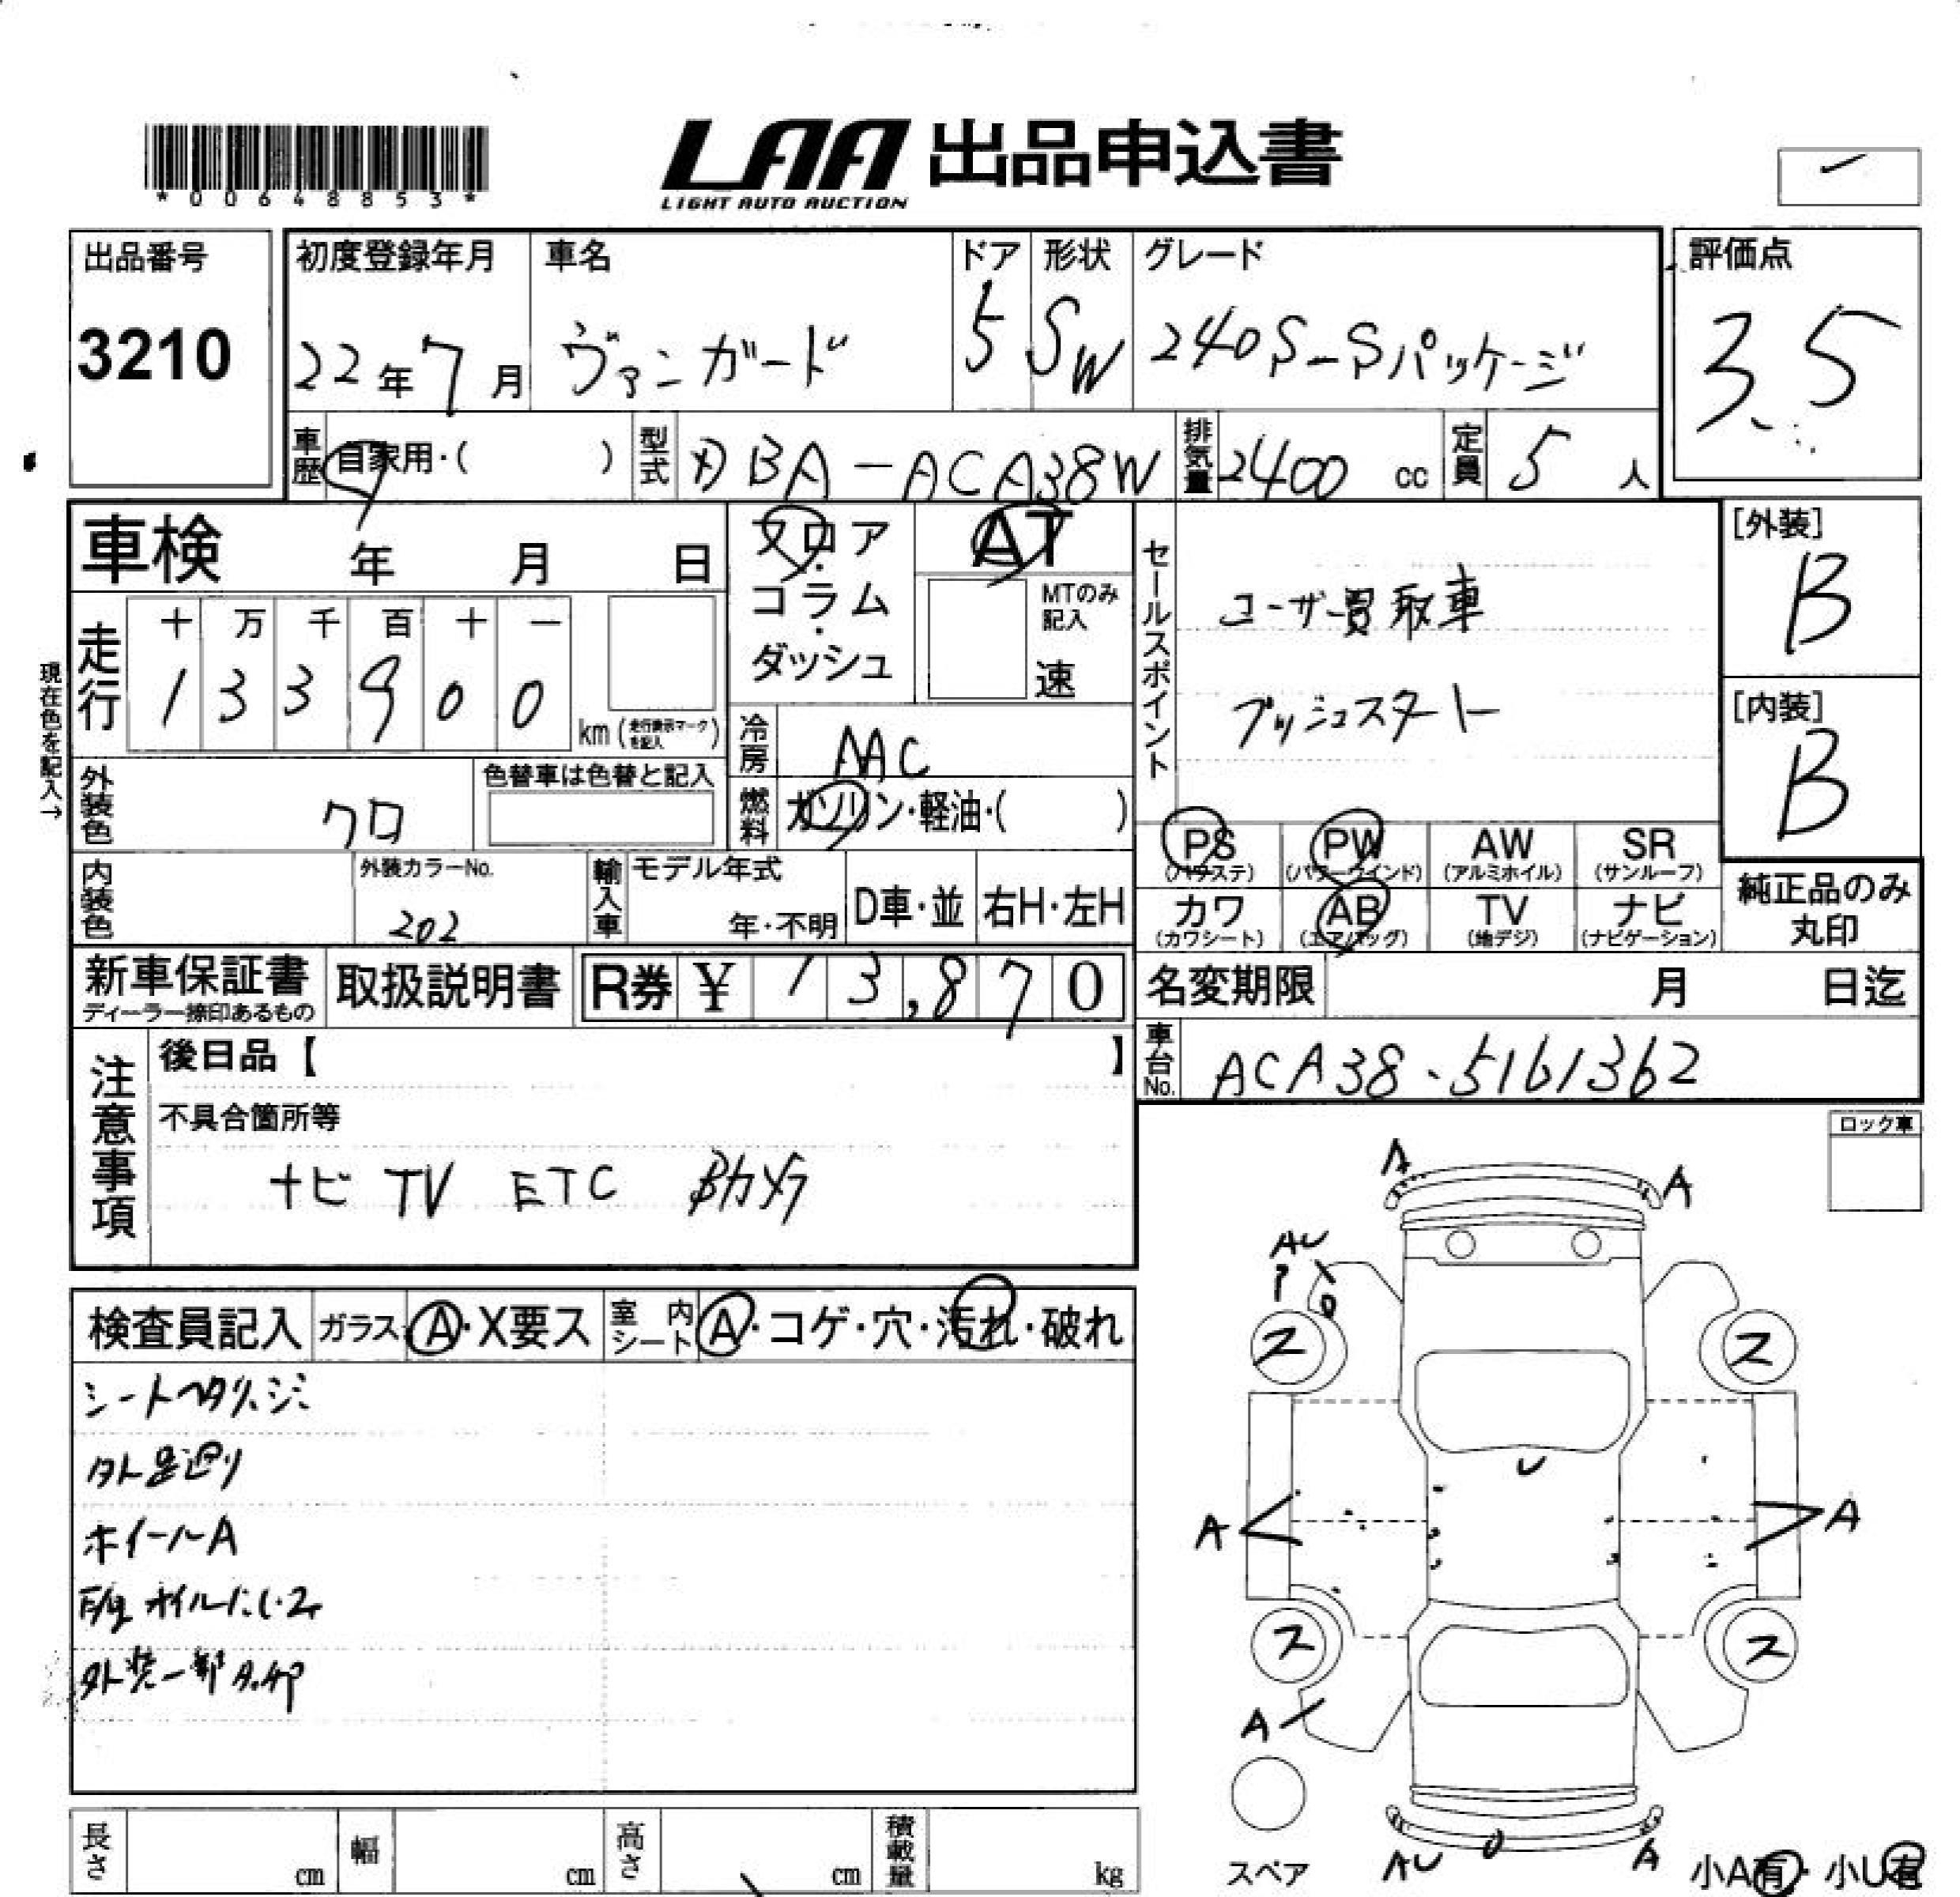 *00648853*
LAA 出品申込書
LIGHT AUTO AUCTION
出品番号
3210
初度登録年月
22年7月
車名
ヴァンガード
ドア
5
形状
SW
グレード
240S-Sパッケージ
評価点
3.5
車歴
自家用・( )
型式
DBA-ACA38W
排気量
2400 cc
定員
5 人
車検 年 月 日
フロア・コラム・ダッシュ
AT
MTのみ記入
速
セールスポイント
ユーザー買取車
プッシュスタート
[外装]
B
[内装]
B
現在色を記入→
走行
十万千百十一
133900
km(走行表示マークを記入)
冷房
AAC
燃料
ガソリン・軽油・( )
外装色
クロ
色替車は色替と記入
内装色
外装カラーNo.
202
輸入車
モデル年式
年・不明
D車・並
右H・左H
PS
(パワステ)
PW
(パワーウインド)
AW
(アルミホイル)
SR
(サンルーフ)
カワ
(カワシート)
AB
(エアバッグ)
TV
(地デジ)
ナビ
(ナビゲーション)
純正品のみ
丸印
新車保証書
ディーラー捺印あるもの
取扱説明書
R券 ¥ 13,870
名変期限 月 日迄
車台No.
ACA38-5161362
注意事項
後日品【 】
不具合箇所等
ナビ TV ETC Bカメラ
ロック車
検査員記入
ガラス A・X要ス
室内シート A・コゲ・穴・汚れ・破れ
シートヘタリ、シミ
外足廻り
ホイールA
下廻オイルにじみ
外装一部A.凹
A
A
AU
P
ス
ス
U
A
A
ス
ス
A
スペア
AU
U
A
小A有・小U有
長さ cm
幅 cm
高さ cm
積載量 kg